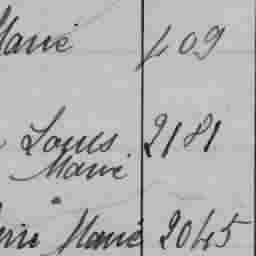 Marie 409
Louis 2181
Marie
Marie 2045